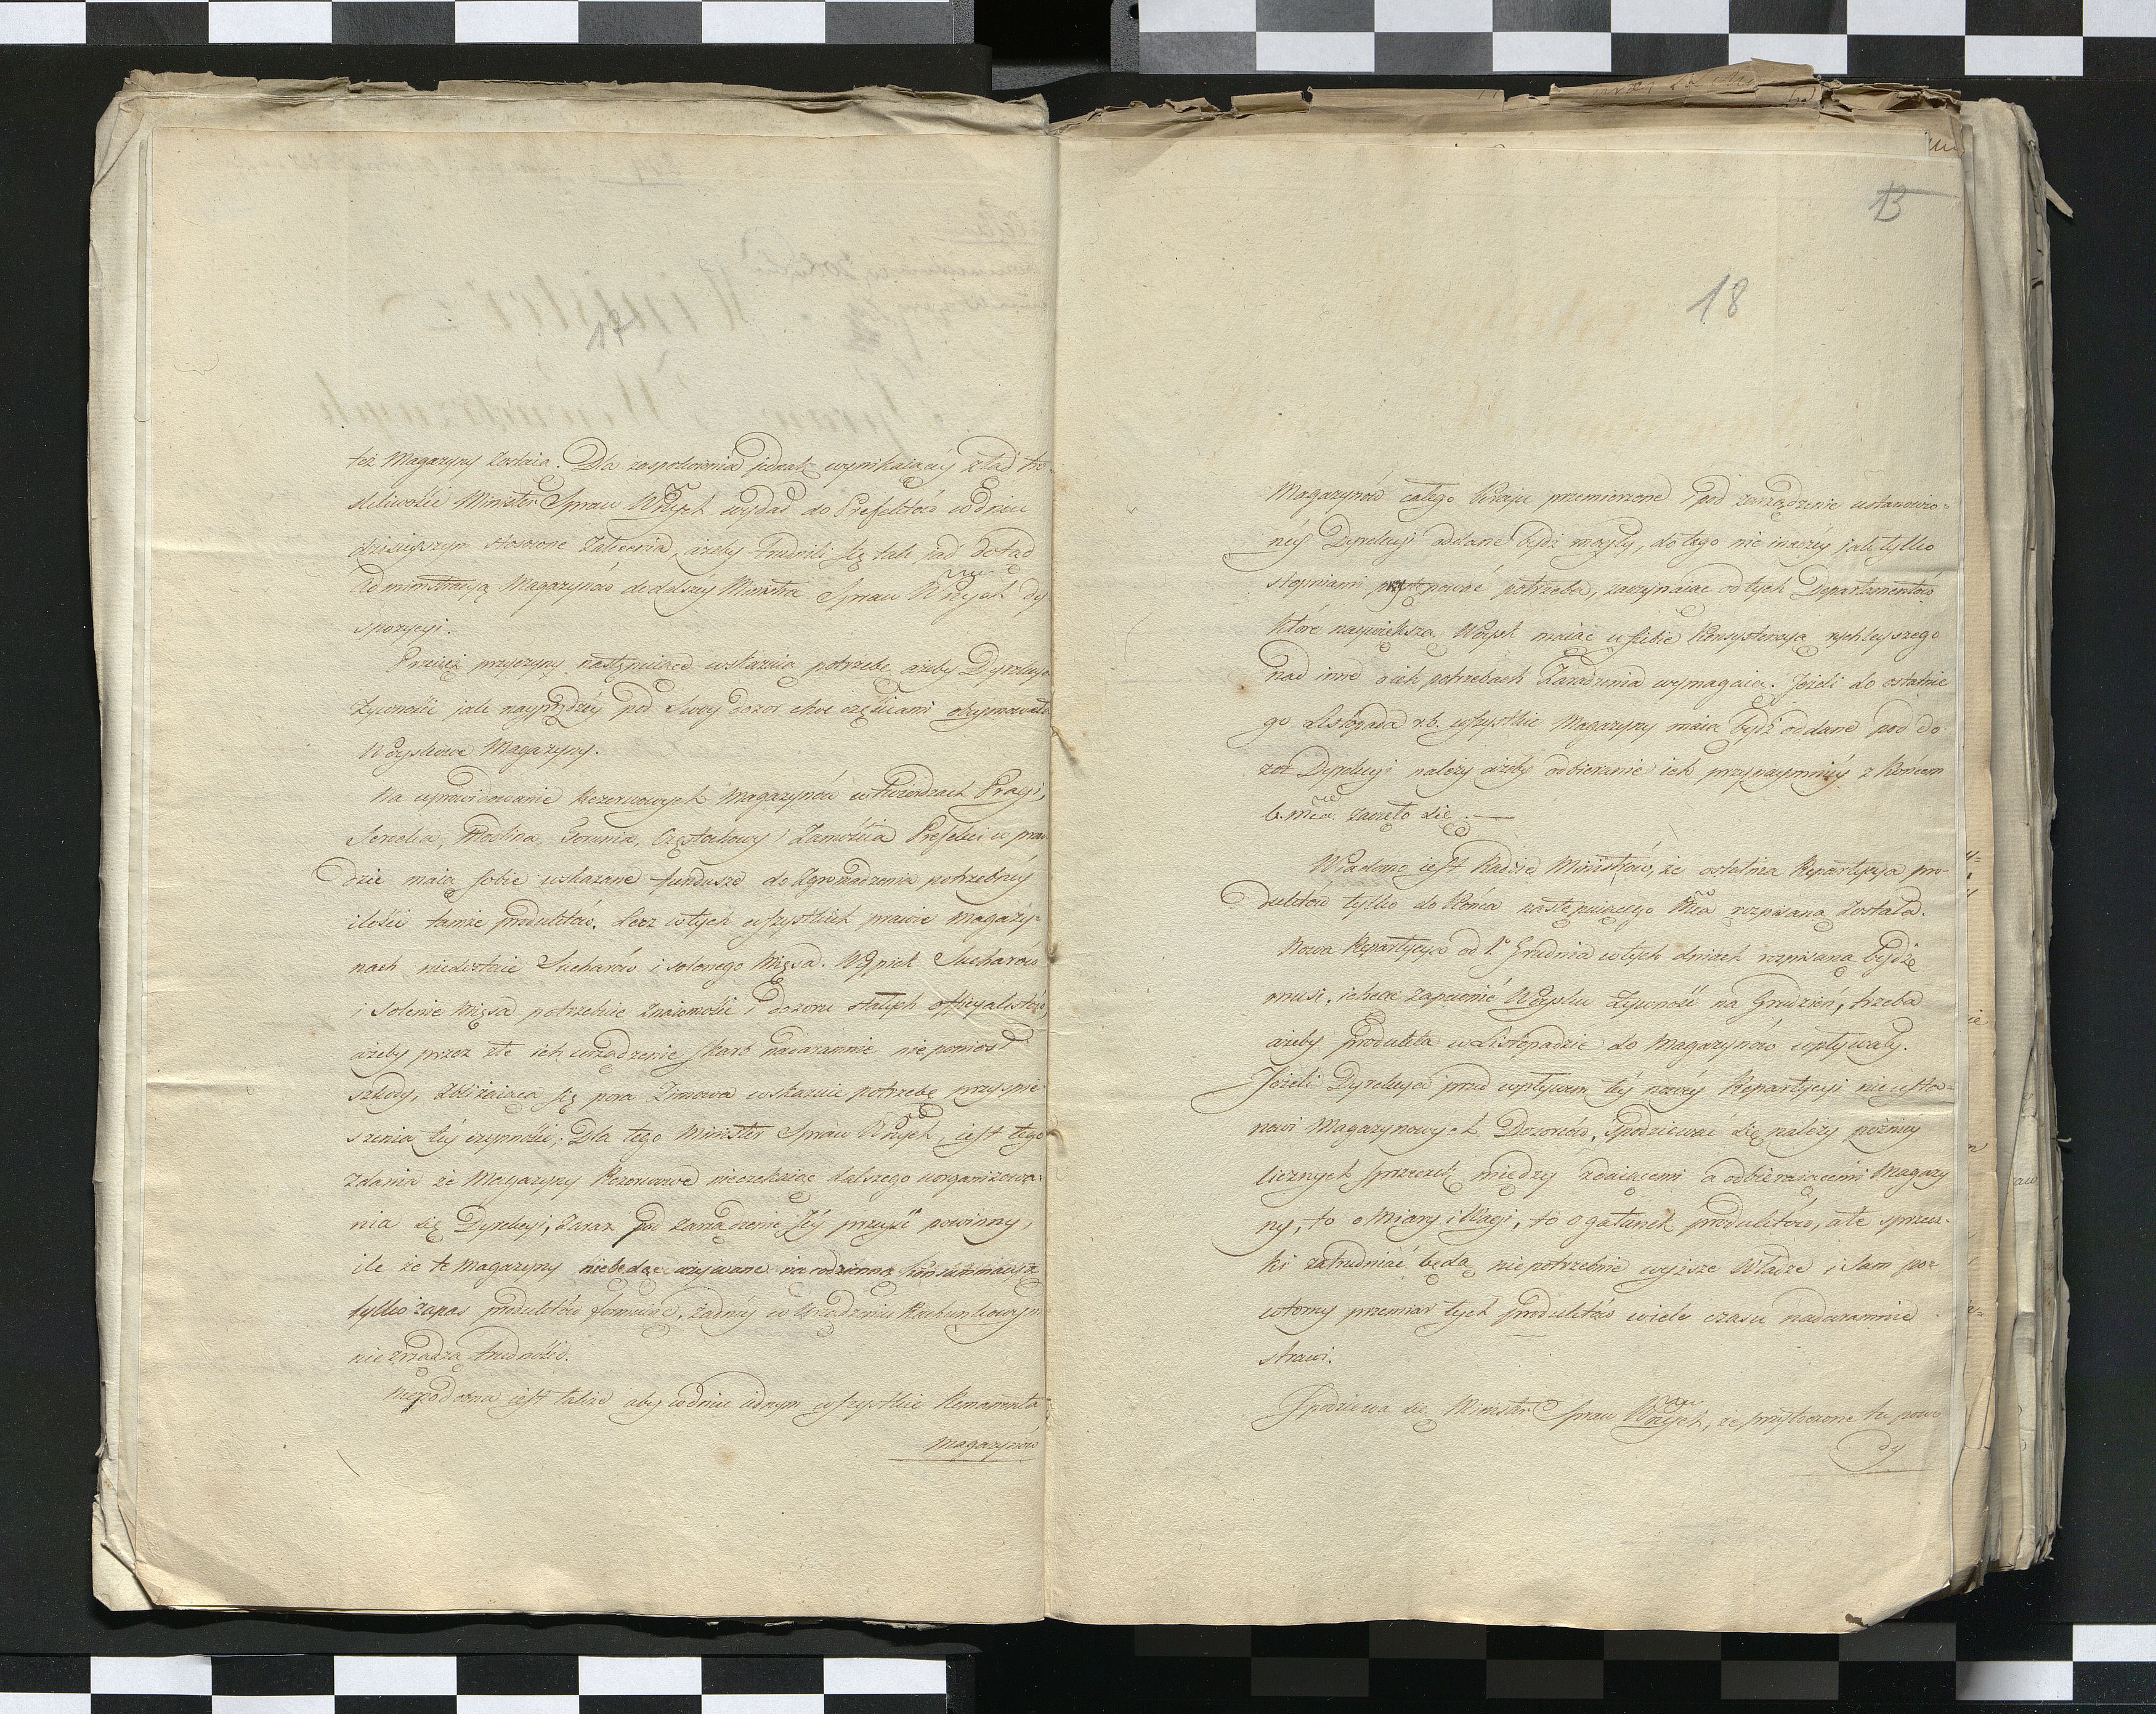 też Magazyny Zostaią. Dla zaspokoienia iednak wynikaiącéy ztąd tro-
skliwości Minister Spraw Wnętrznych wydał do Prefektów w dniu
dzisieyszym stosowne Zalecenia, ażeby Trudnili się tak jak dotąd
Administracyą Magazynów do dalszéy Ministra Spraw Wnętrznych dy
spozycyi.
Przecież przyczyny następuiące wskazuią potrzebę ażeby Dyrekcya
Żywności jak nayprędzéy pod Swóy dozor choć częściami obeymowała
Woyskowe Magazyny.
Na uprowidowanie Rezerwowych Magazynów w Twierdzach Pragi,
Serocka, Modlina, Torunia, Częstochowy i Zamościa Prefekci w praw
dzie maią sobie wskazane fundusze do Zgromadzenia potrzebnéy
ilości tamże produktów. Lecz w tych wszystkich prawie Magazy-
nach niedostaie Sucharów i solonego Mięsa. Wypiek Sucharów
i Solenie Mięsa potrzebuie Znaiomości i dozoru stałych officyalistów,
ażeby przez złe ich urządzenie Skarb nadaremnie nie poniosł
szkody, Zbliżaiąca się pora Zimowa wskazuie potrzebę przyspie-
szenia téy czynności; Dla tego Minister Spraw Wnętrznych, iest tego
Zdania że Magazyny Rezerwowe nieczekaiąc dalszego uorganizowa-
nia się Dyrekcyi, Zaraz pod zarządzenie Jéy przeyść powinny,
ile że te Magazyny niebędąc używane na codzienną konsummacyą
tylko zapas produktów formuiąc, żadnéy w Urządzeniu Rachunkowym
nie zrządzą trudności.
Niepodobna iest także aby w dniu iednym wszystkie Remanenta
Magazynów
13
18
Magazynów całego Kraju przemierzone i pod zarządzenie ustanowio-
néy Dyrekcyi oddane bydź mogły, do tego nie inaczéy jak tylko
stopniami postępować potrzeba, zaczynaiąc od tych Departamentów
które naywiększą Woysk maiąc u siebie Konsystencyą rychleyszego
nad inne o ich potrzebach Zaradzenia wymagaią. Jeżeli do ostatnie
go Listopada r.b. wszystkie Magazyny maią bydź oddane pod do-
zor Dyrekcyi należy ażeby odbieranie ich przynaymniéy z Końcem
b. mca zaczęło się. —
Wiadomo iest Radzie Ministrów, że ostatnia Repartycya pro-
duktów tylko do Końca następuiącego Mca rozpisana Została.
Nowa Repartycya od 1o Grudnia w tych dniach rozpisana bydź
musi, i chcąc zapewnić Woysku żywność na Grudzień, trzeba
ażeby produkta w Listopadzie do Magazynów wpływały.
Jeżeli Dyrekcya przed wpływem téy nowéy Repartycyi nie usta-
nowi Magazynowych Dozorców, spodziewać się należy późniéy
licznych sprzeczek między zdaiącemi a odbieraiącemi Magazy
ny, to o Miary i Wagi, to o gatunek produktów, a te sprzecz-
ki zatrudniać będą niepotrzebnie wyższe Władze i sam po-
wtorny przemiar tych produktów wiele czasu nadaremnie
strawi.
Spodziewa się Minister Spraw Wnętrznych, że przytoczone tu powo
dy